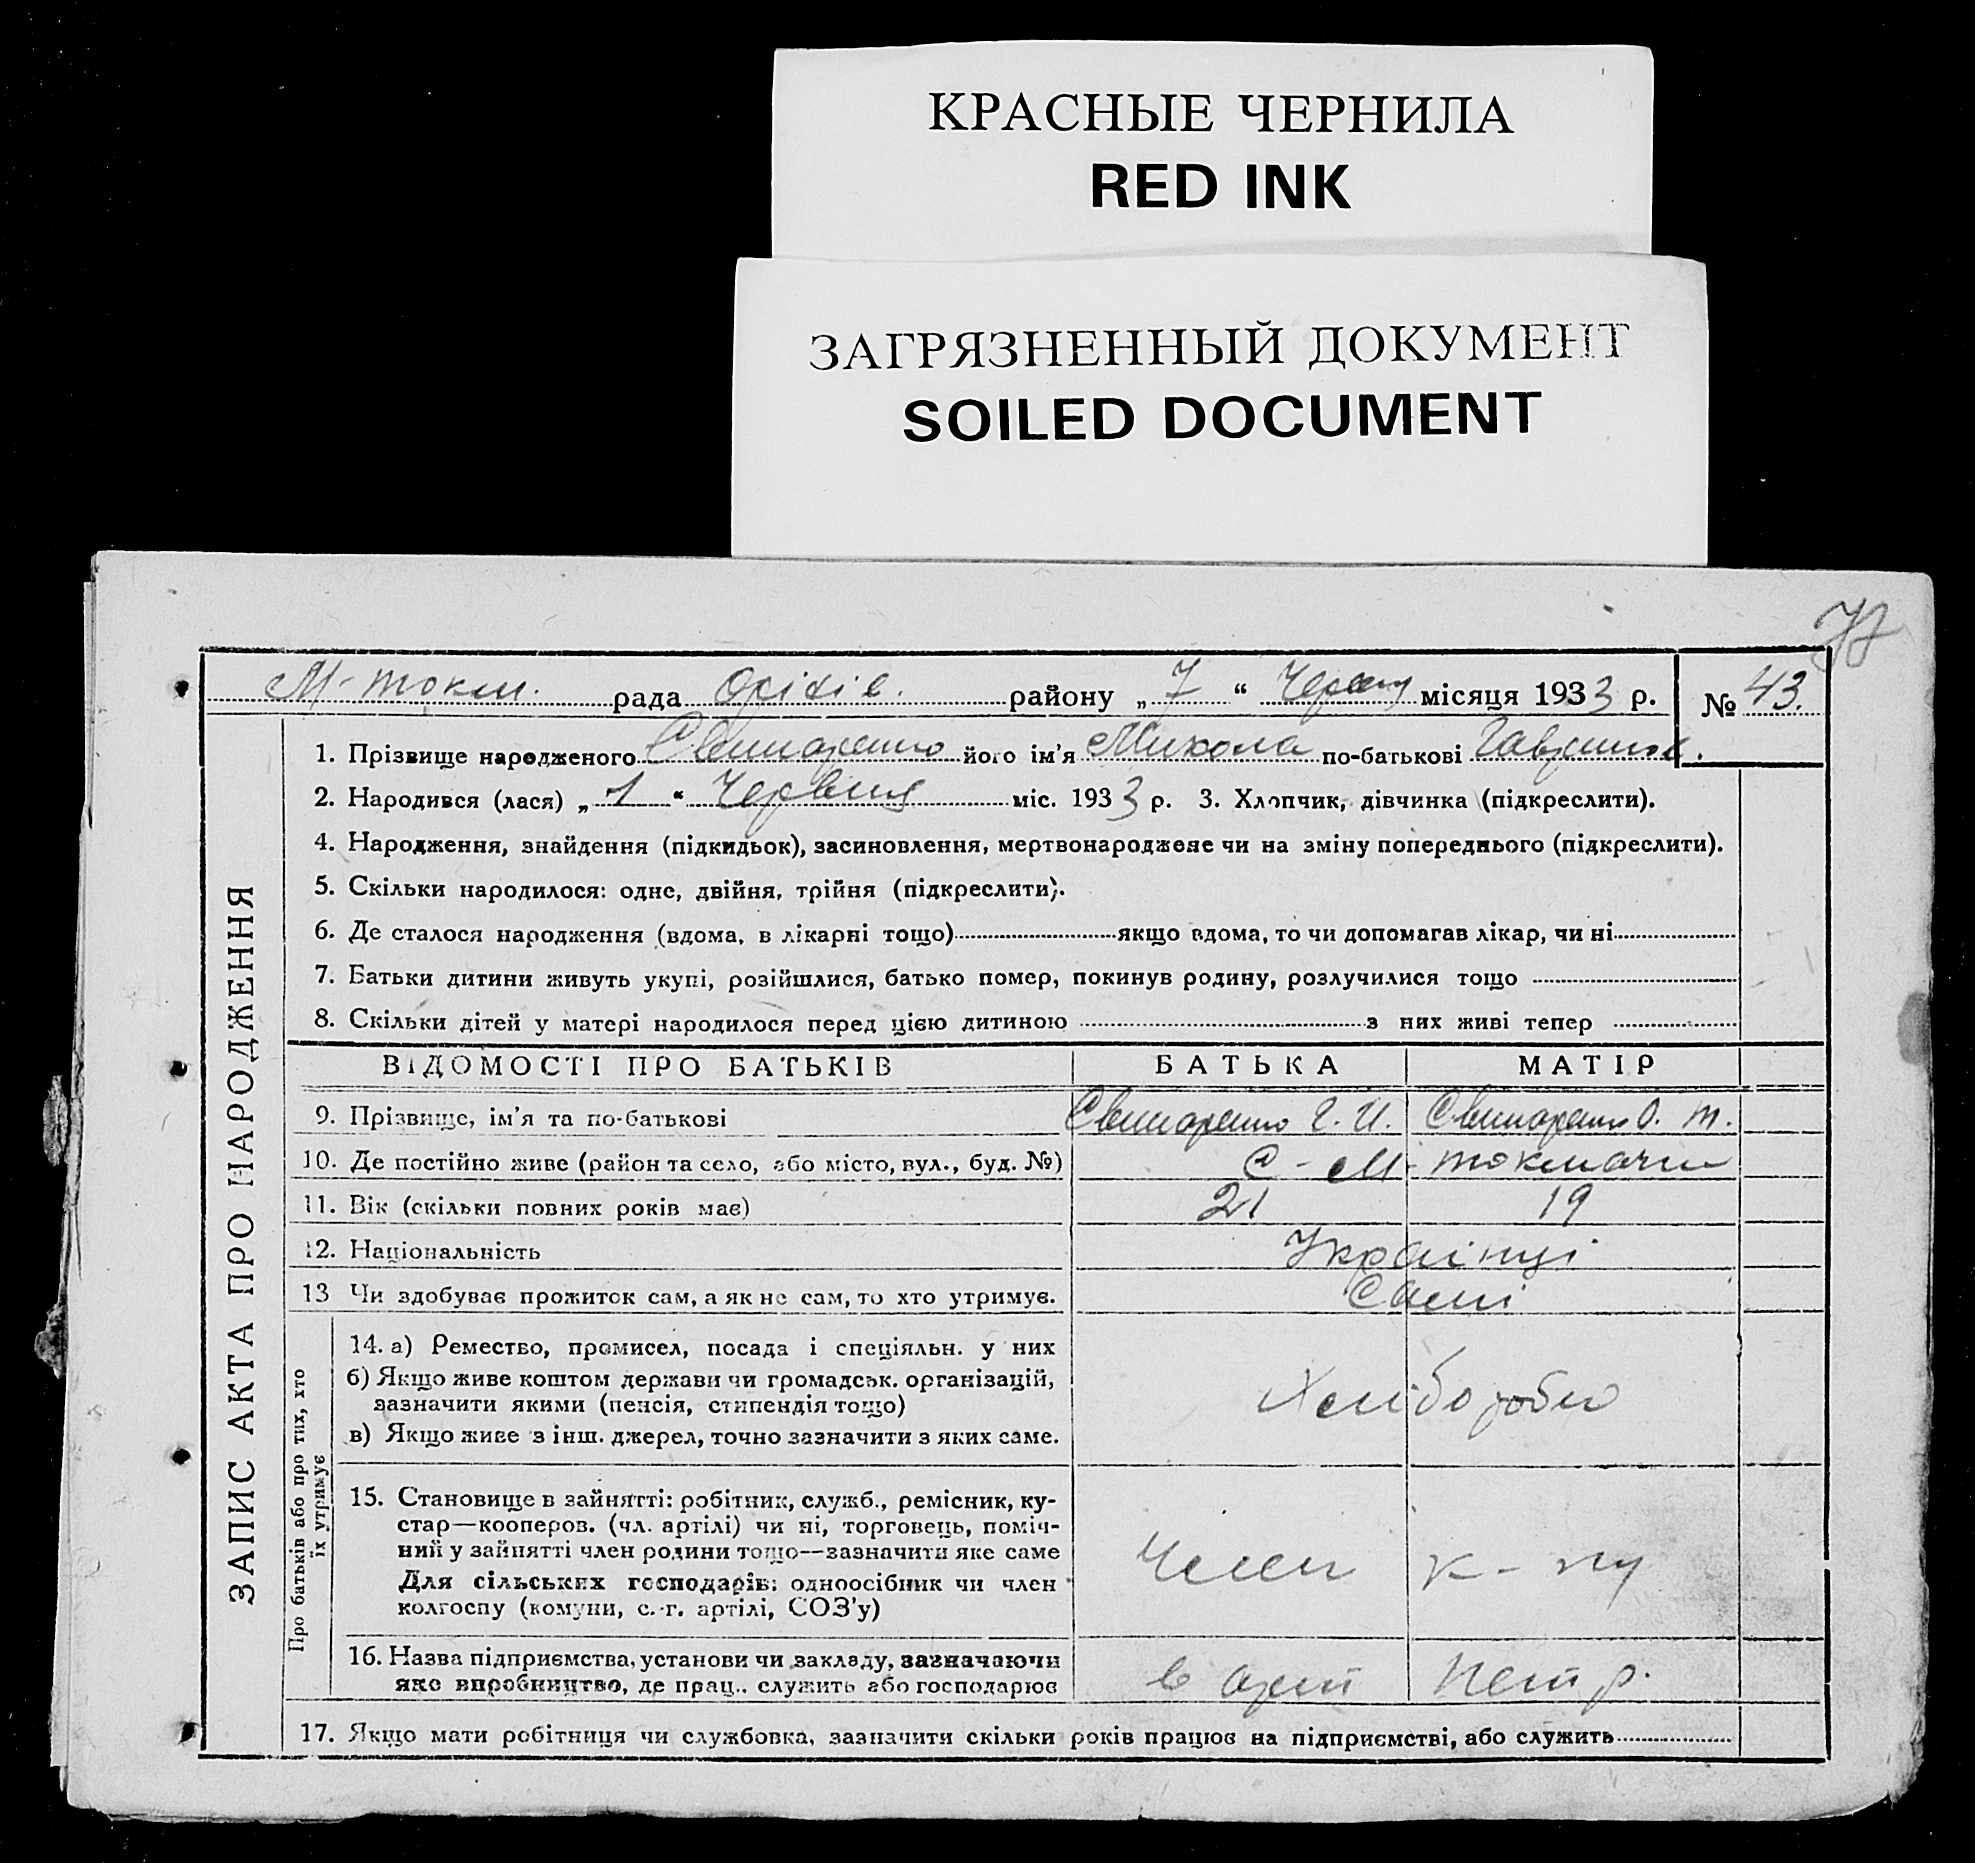 КРАСНЫЕ ЧЕРНИЛА
RED INK
ЗАГРЯЗНЕННЫЙ ДОКУМЕНТ
SOILED DOCUMENT
77
М-токм. рада Оріхів. району „7“ Червня місяця 1933 р. № 43.
ЗАПИС АКТА ПРО НАРОДЖЕННЯ
1. Прізвище народженого Свинаренко його ім'я Микола по-батькові
2. Народився (лася) „1“ Червня міс. 1933 р. 3. Хлопчик, дівчинка (підкреслити).
4. Народження, знайдення (підкидьок), засиновлення, мертвонароджене чи на зміну попереднього (підкреслити).
5. Скільки народилося: одне, двійня, трійня (підкреслити).
6. Де сталося народження (вдома, в лікарні тощо) якщо вдома, то чи допомагав лікар, чи ні
7. Батьки дитини живуть укупі, розійшлися, батько помер, покинув родину, розлучилися тощо
8. Скільки дітей у матері народилося перед цією дитиною з них живі тепер
ВІДОМОСТІ ПРО БАТЬКІВ БАТЬКА МАТІР
9. Прізвище, ім'я та по-батькові Свинаренко Г. И. Свинаренко О. Т.
10. Де постійно живе (район та село, або місто, вул., буд. №) С-М-токмачка
11. Вік (скільки повних років має) 21 19
12. Національність Українці
13 Чи здобуває прожиток сам, а як не сам, то хто утримує. Самі
Про батьків або про тих, хто їх утримує
14. а) Ремество, промисел, посада і спеціяльн. у них
б) Якщо живе коштом держави чи громадськ. організацій,
зазначити якими (пенсія, стипендія тощо) Хліборобст
в) Якщо живе з інш. джерел, точно зазначити з яких саме.
15. Становище в зайнятті: робітник, служб., ремісник, ку-
стар—кооперов. (чл. артілі) чи ні, торговець, поміч-
ний у зайнятті член родини тощо—зазначити яке саме Член к-пу
Для сільських господарів: одноосібник чи член
колгоспу (комуни, с.-г. артілі, СОЗ'у)
16. Назва підприємства, установи чи закладу, зазначаючи
яке виробництво, де прац., служить або господарює в арт Петр.
17. Якщо мати робітниця чи службовка, зазначити скільки років працює на підприємстві, або служить